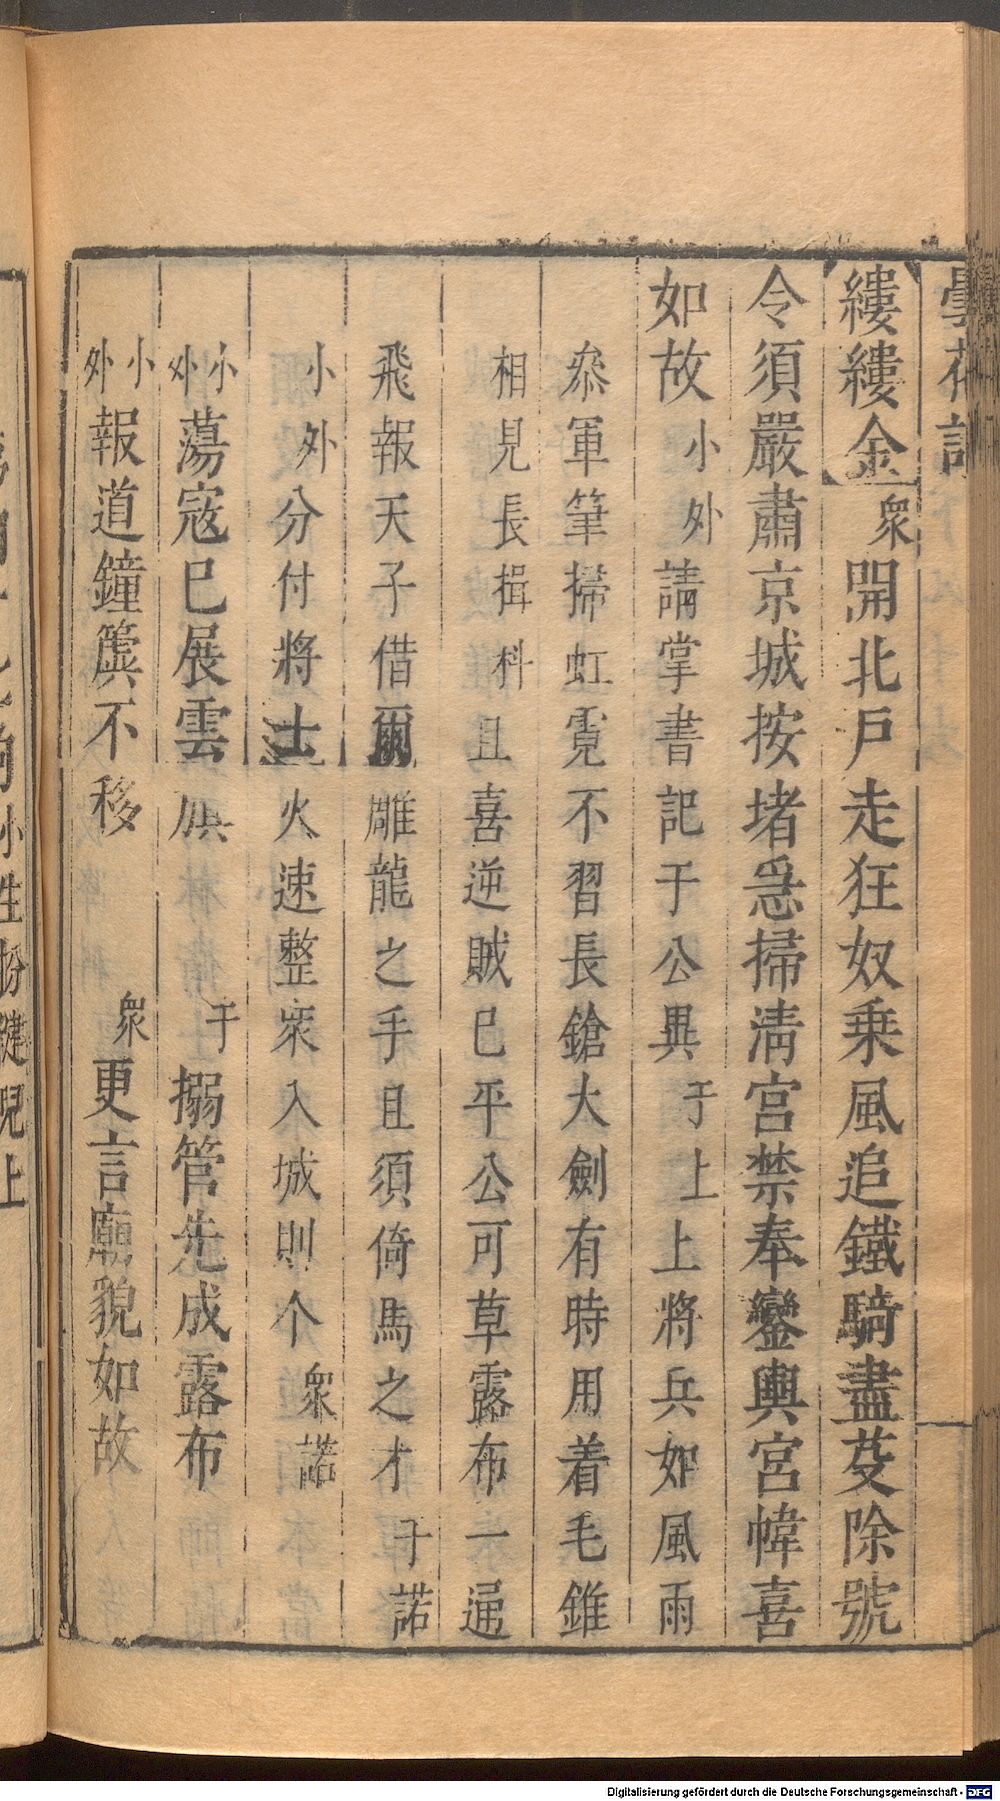 曇花記
縷縷金衆開北戶走狂奴乗風追鐵騎盡芟除號
令須嚴肅京城按堵急掃清宮禁奉鑾輿宮幃喜
如故小外請掌書記于公異于上上將兵如風雨
叅軍筆掃虹霓不習長鎗大劍有時用着毛錐
相見長揖科且喜逆賊巳平公可草露布一通
飛報天子借爾雕龍之手且須倚馬之才于諾
小外分付將士火速整衆入城則个衆諾
小外蕩寇巳展雲旗于搦管先成露布
小外報道鐘簴不移衆更言廟貌如故
小生扮健兒上
Digitalisierung gefördert durch die Deutsche Forschungsgemeinschaft - DFG